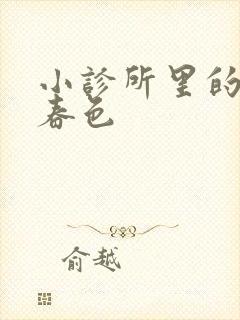 小診所里的
春色
俞越